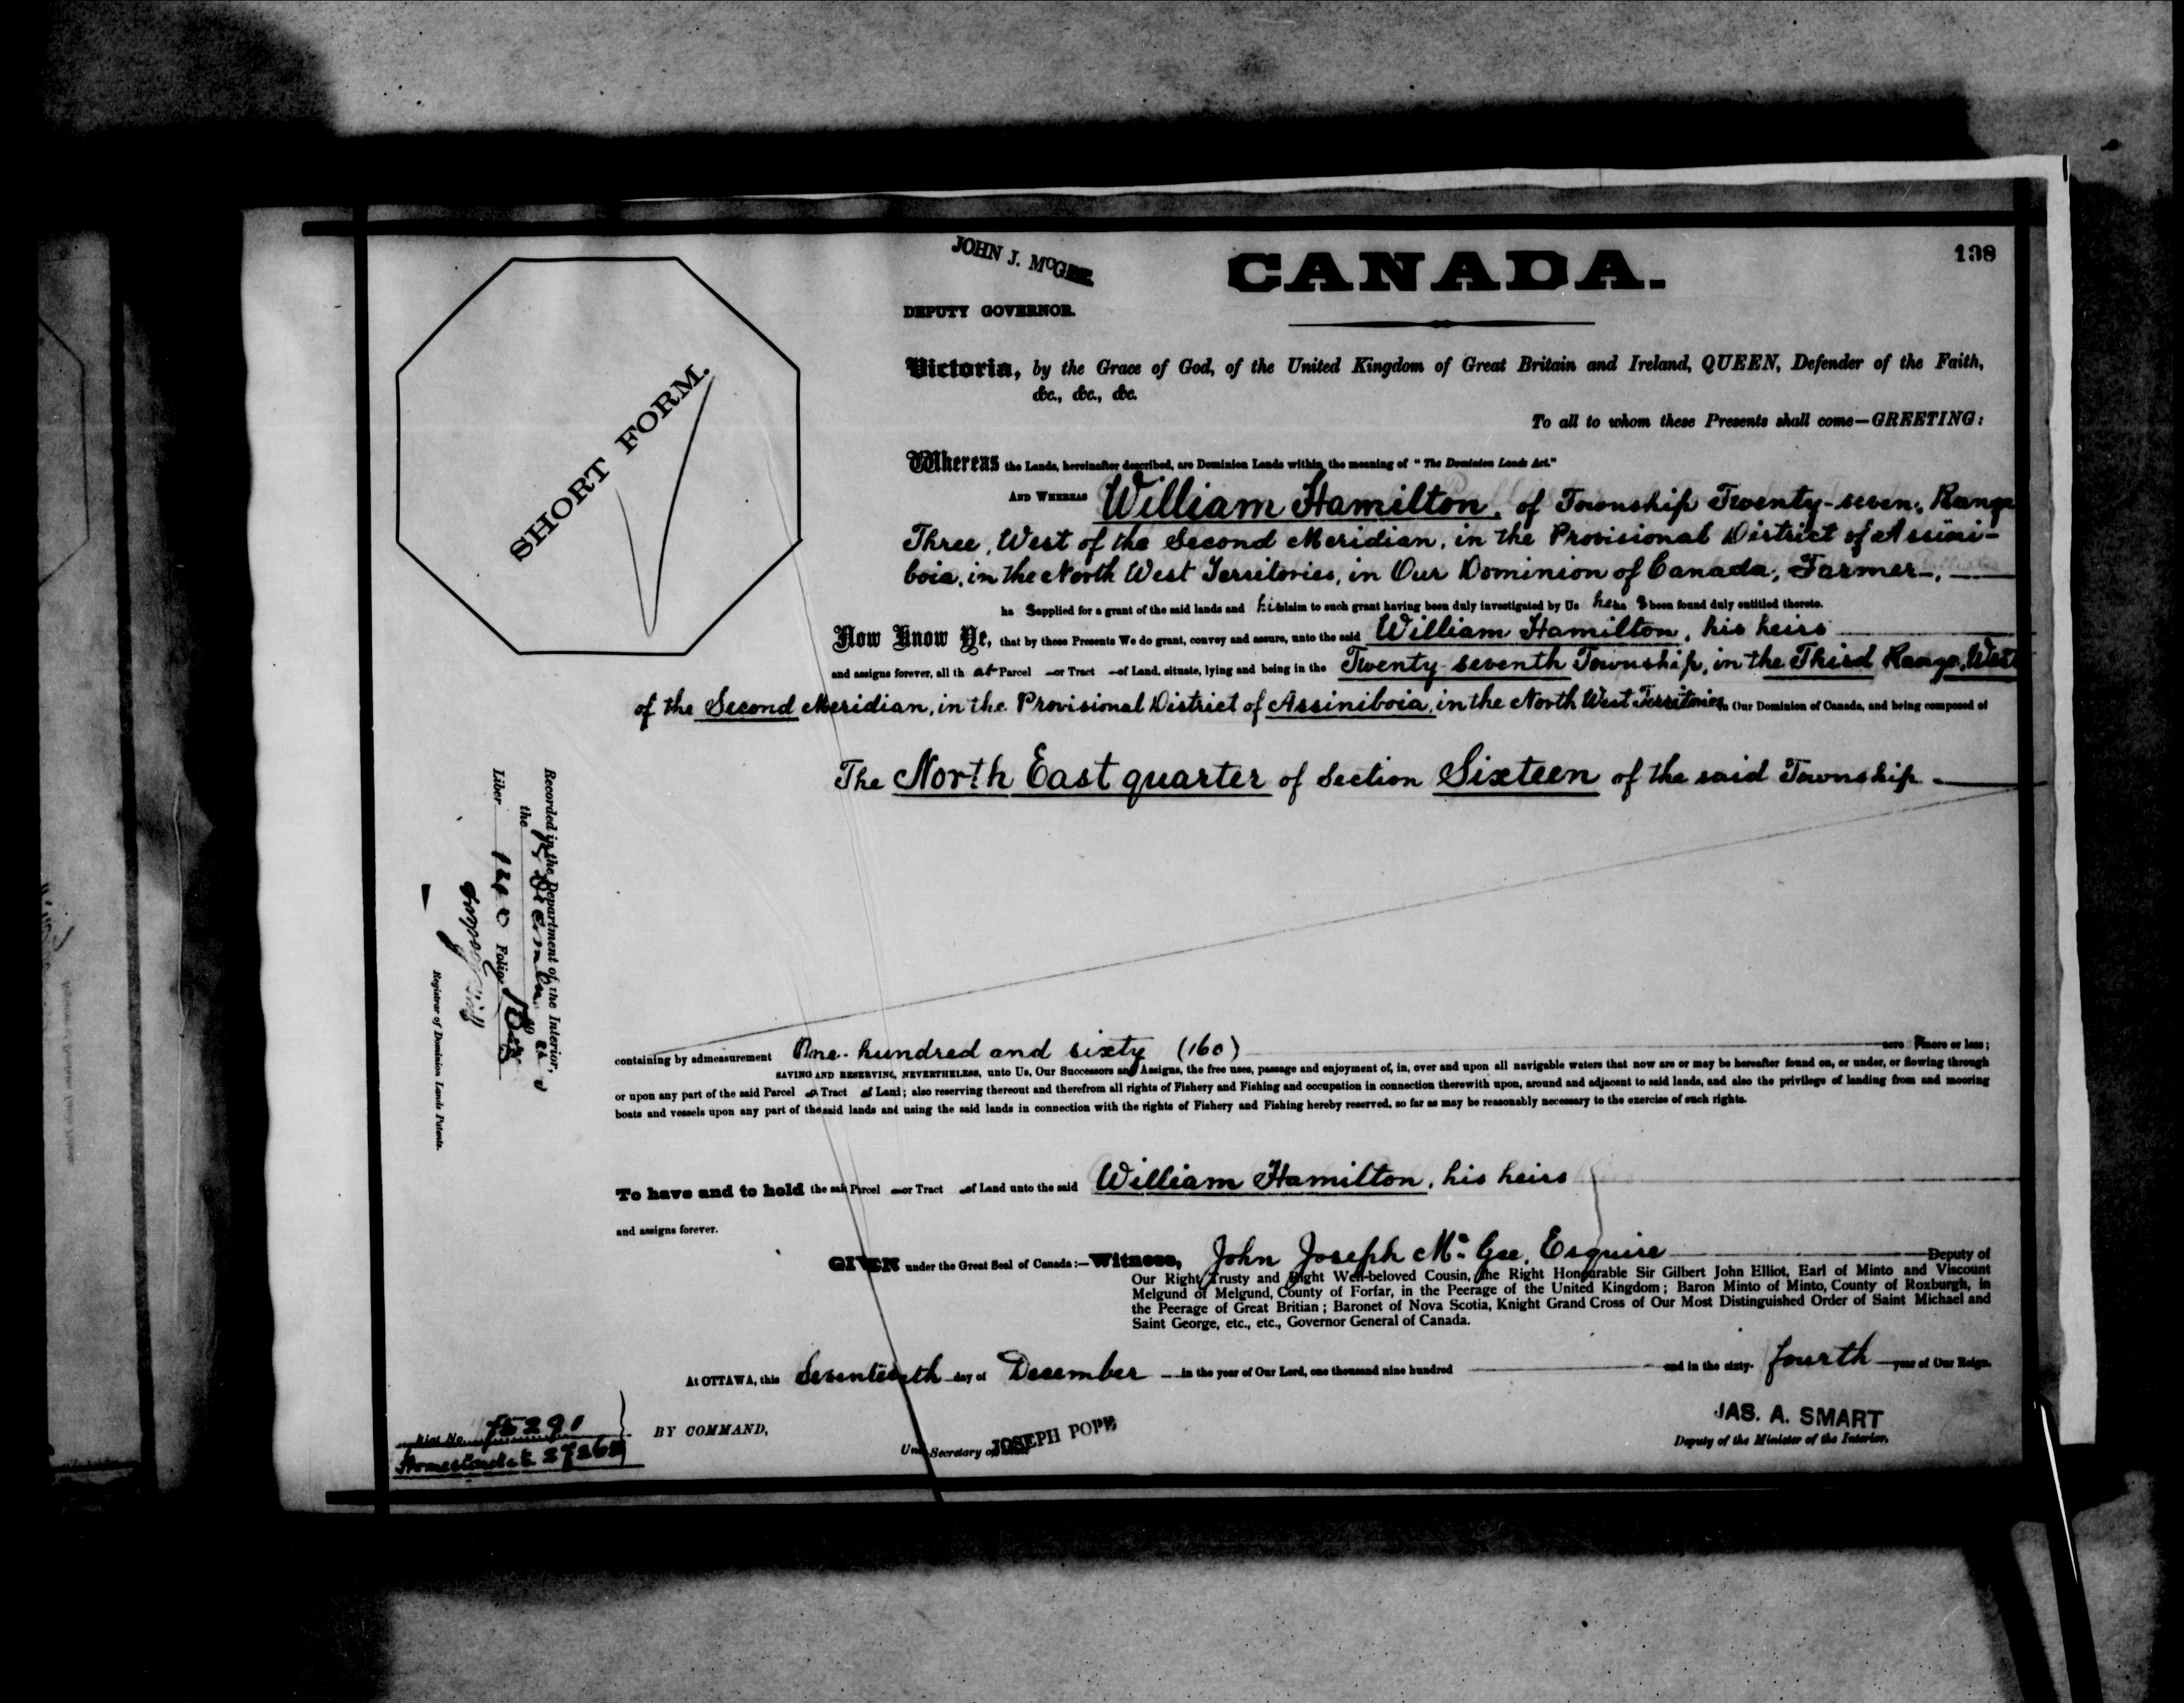 138
JOHN J. McGEE
CANADA.
DEPUTY GOVERNOR.
SHORT FORM.
Victoria, by the Grace of God, of the United Kingdom of Great Britain and Ireland, QUEEN, Defender of the Faith,
&c., &c., &c.
To all to whom these Presents shall come—GREETING:
Whereas the Lands, hereinafter described, are Dominion Lands within the meaning of "The Dominion Lands Act."
AND WHEREAS William Hamilton, of Township Twenty-seven, Range
Three, West of the Second Meridian, in the Provisional District of Assini-
boia, in the North West Territories, in Our Dominion of Canada, Farmer,
ha s applied for a grant of the said lands and his claim to such grant having been duly investigated by Us he ha s been found duly entitled thereto.
Now Know Ye, that by these Presents We do grant, convey and assure, unto the said William Hamilton, his heirs
and assigns forever, all th at Parcel or Tract of Land, situate, lying and being in the Twenty-seventh Township, in the Third Range, West
of the Second Meridian, in the Provisional District of Assiniboia, in the North West Territories, in Our Dominion of Canada, and being composed of
The North East quarter of Section Sixteen of the said Township
Recorded in the Department of the Interior,
the December
Liber 140 Folio 138
Registrar of Dominion Lands Patents.
containing by admeasurement One hundred and sixty (160) acre s more or less;
SAVING AND RESERVING, NEVERTHELESS, unto Us, Our Successors and Assigns, the free uses, passage and enjoyment of, in, over and upon all navigable waters that now are or may be hereafter found on, or under, or flowing through
or upon any part of the said Parcel or Tract of Land; also reserving thereout and therefrom all rights of Fishery and Fishing and occupation in connection therewith upon, around and adjacent to said lands, and also the privilege of landing from and mooring
boats and vessels upon any part of the said lands and using the said lands in connection with the rights of Fishery and Fishing hereby reserved, so far as may be reasonably necessary to the exercise of such rights.
To have and to hold the said Parcel or Tract of Land unto the said William Hamilton, his heirs
and assigns forever.
GIVEN under the Great Seal of Canada:—Witness, John Joseph McGee, Esquire Deputy of
Our Right Trusty and Right Well-beloved Cousin, the Right Honourable Sir Gilbert John Elliot, Earl of Minto and Viscount
Melgund of Melgund, County of Forfar, in the Peerage of the United Kingdom; Baron Minto of Minto, County of Roxburgh, in
the Peerage of Great Britian; Baronet of Nova Scotia, Knight Grand Cross of Our Most Distinguished Order of Saint Michael and
Saint George, etc., etc., Governor General of Canada.
At OTTAWA, this Seventeenth day of December in the year of Our Lord, one thousand nine hundred and in the sixty-fourth year of Our Reign.
BY COMMAND,
JOSEPH POPE
Under Secretary of State
JAS. A. SMART
Deputy of the Minister of the Interior.
No. 75291
Homestead